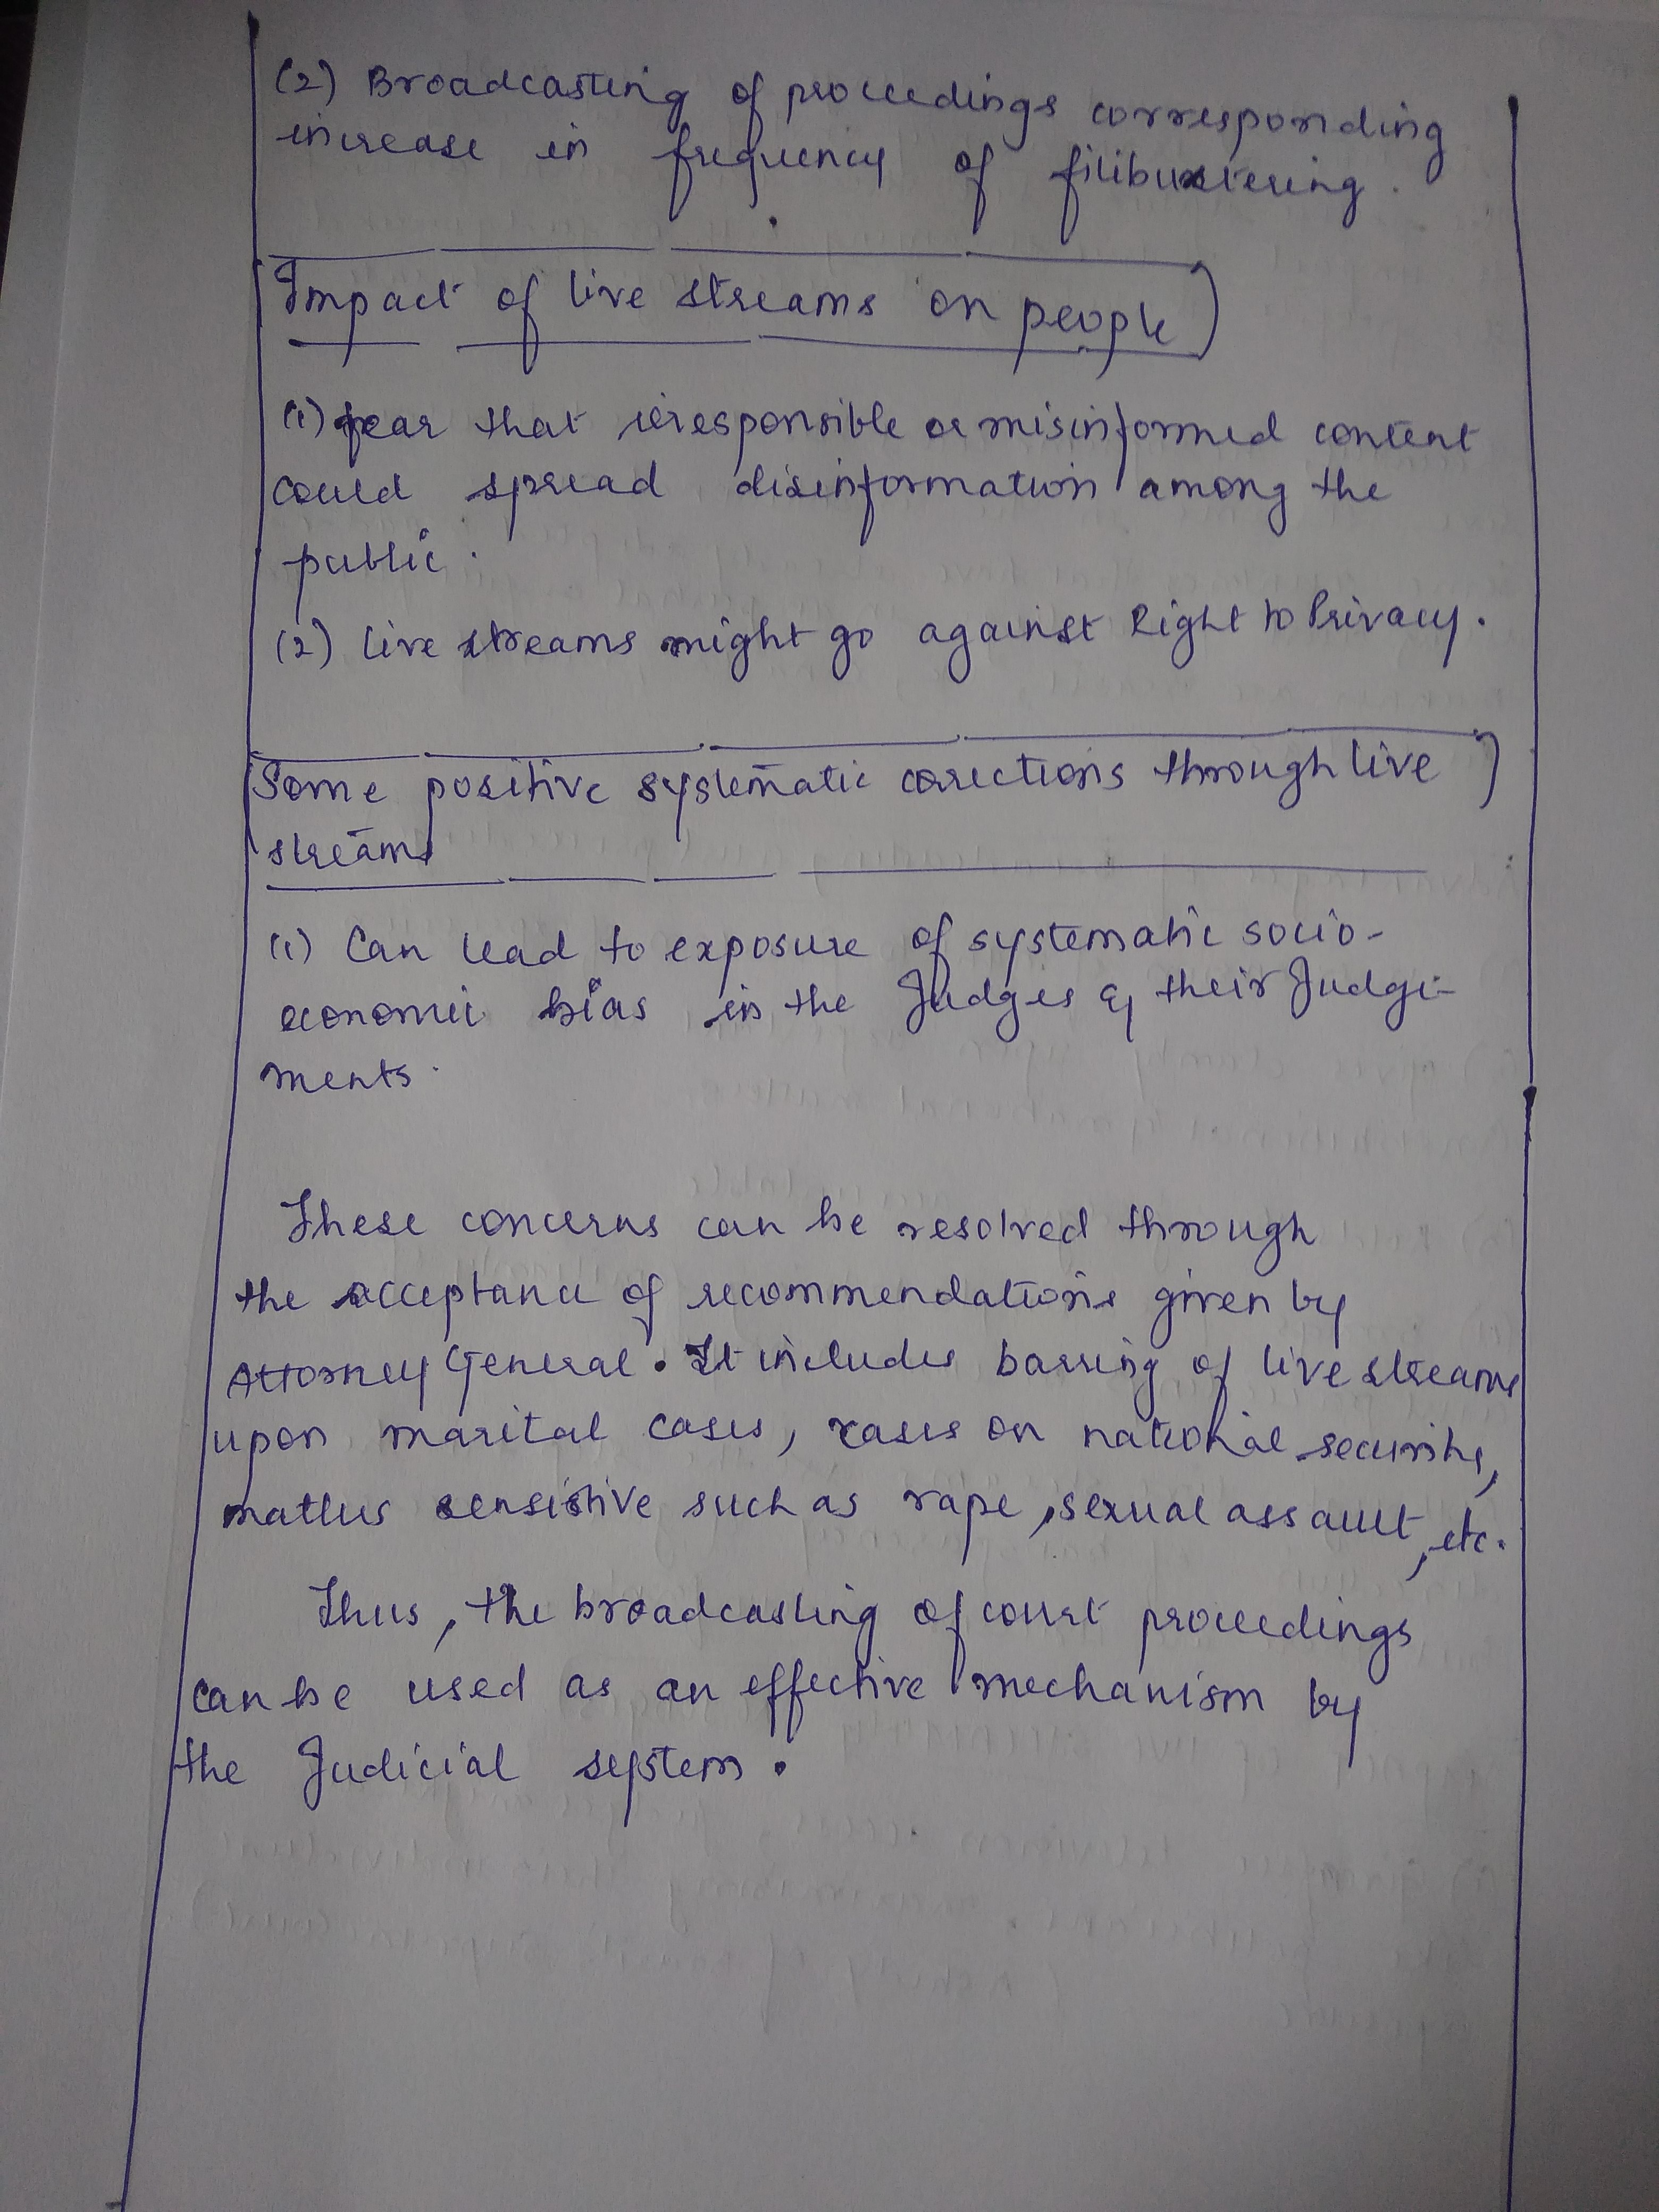 (2) Broadcasting of proceedings corresponding
increase in frequency of filibustering.
Impact of live streams on people
(1) fear that irresponsible or misinformed content
could spread disinformation among the
public.
(2) live streams might go against Right to Privacy.
Some positive systematic corrections through live
streams
(1) Can lead to exposure of systematic socio-
economic bias in the Judges & their Judge-
ments.
These concerns can be resolved through
the acceptance of recommendations given by
Attorney General. It includes barring of live streams
upon marital cases, cases on national security,
matters sensistive such as rape, sexual assault, etc.
Thus, the broadcasting of court proceedings
can be used as an effective mechanism by
the Judicial system.